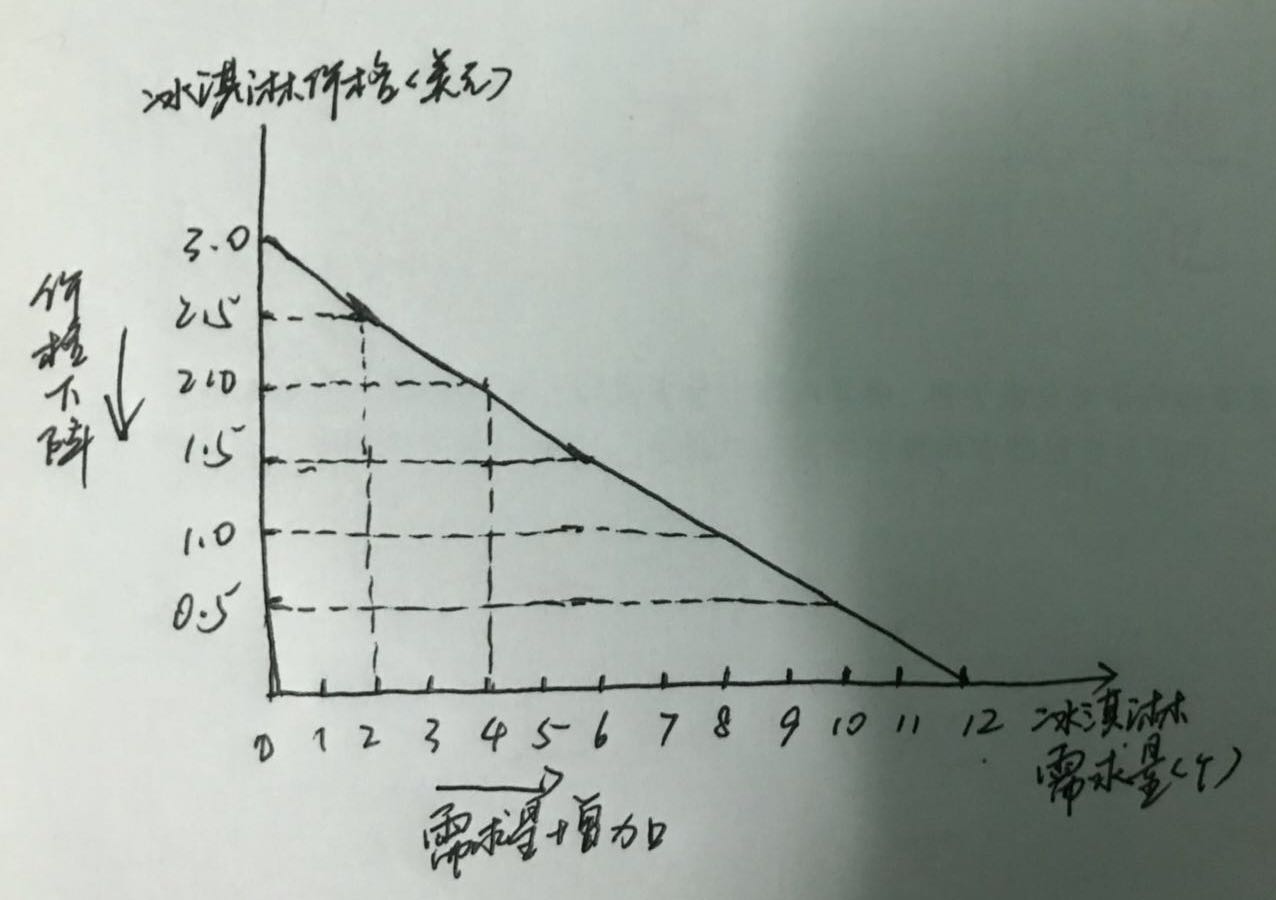 冰淇淋价格(美元)
3.0
2.5
2.0
1.5
1.0
0.5
价格下降
0 1 2 3 4 5 6 7 8 9 10 11 12
冰淇淋
需求量(个)
需求量增加